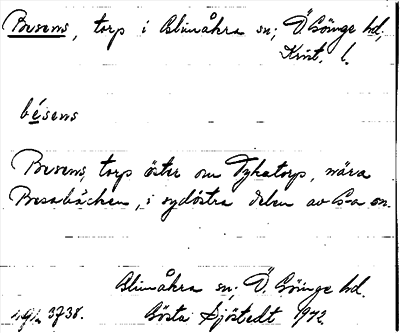 Besens, torp i Glimåkra sn; Ö. Göinge hd,
Krist. l.
bésens
Besens, torp öster om Dykatorp, nära
Besabäcken, i sydöstra delen av G-a sn.
Glimåkra sn; Ö. Göinge hd.
3738. Gösta Sjöstedt 1972.